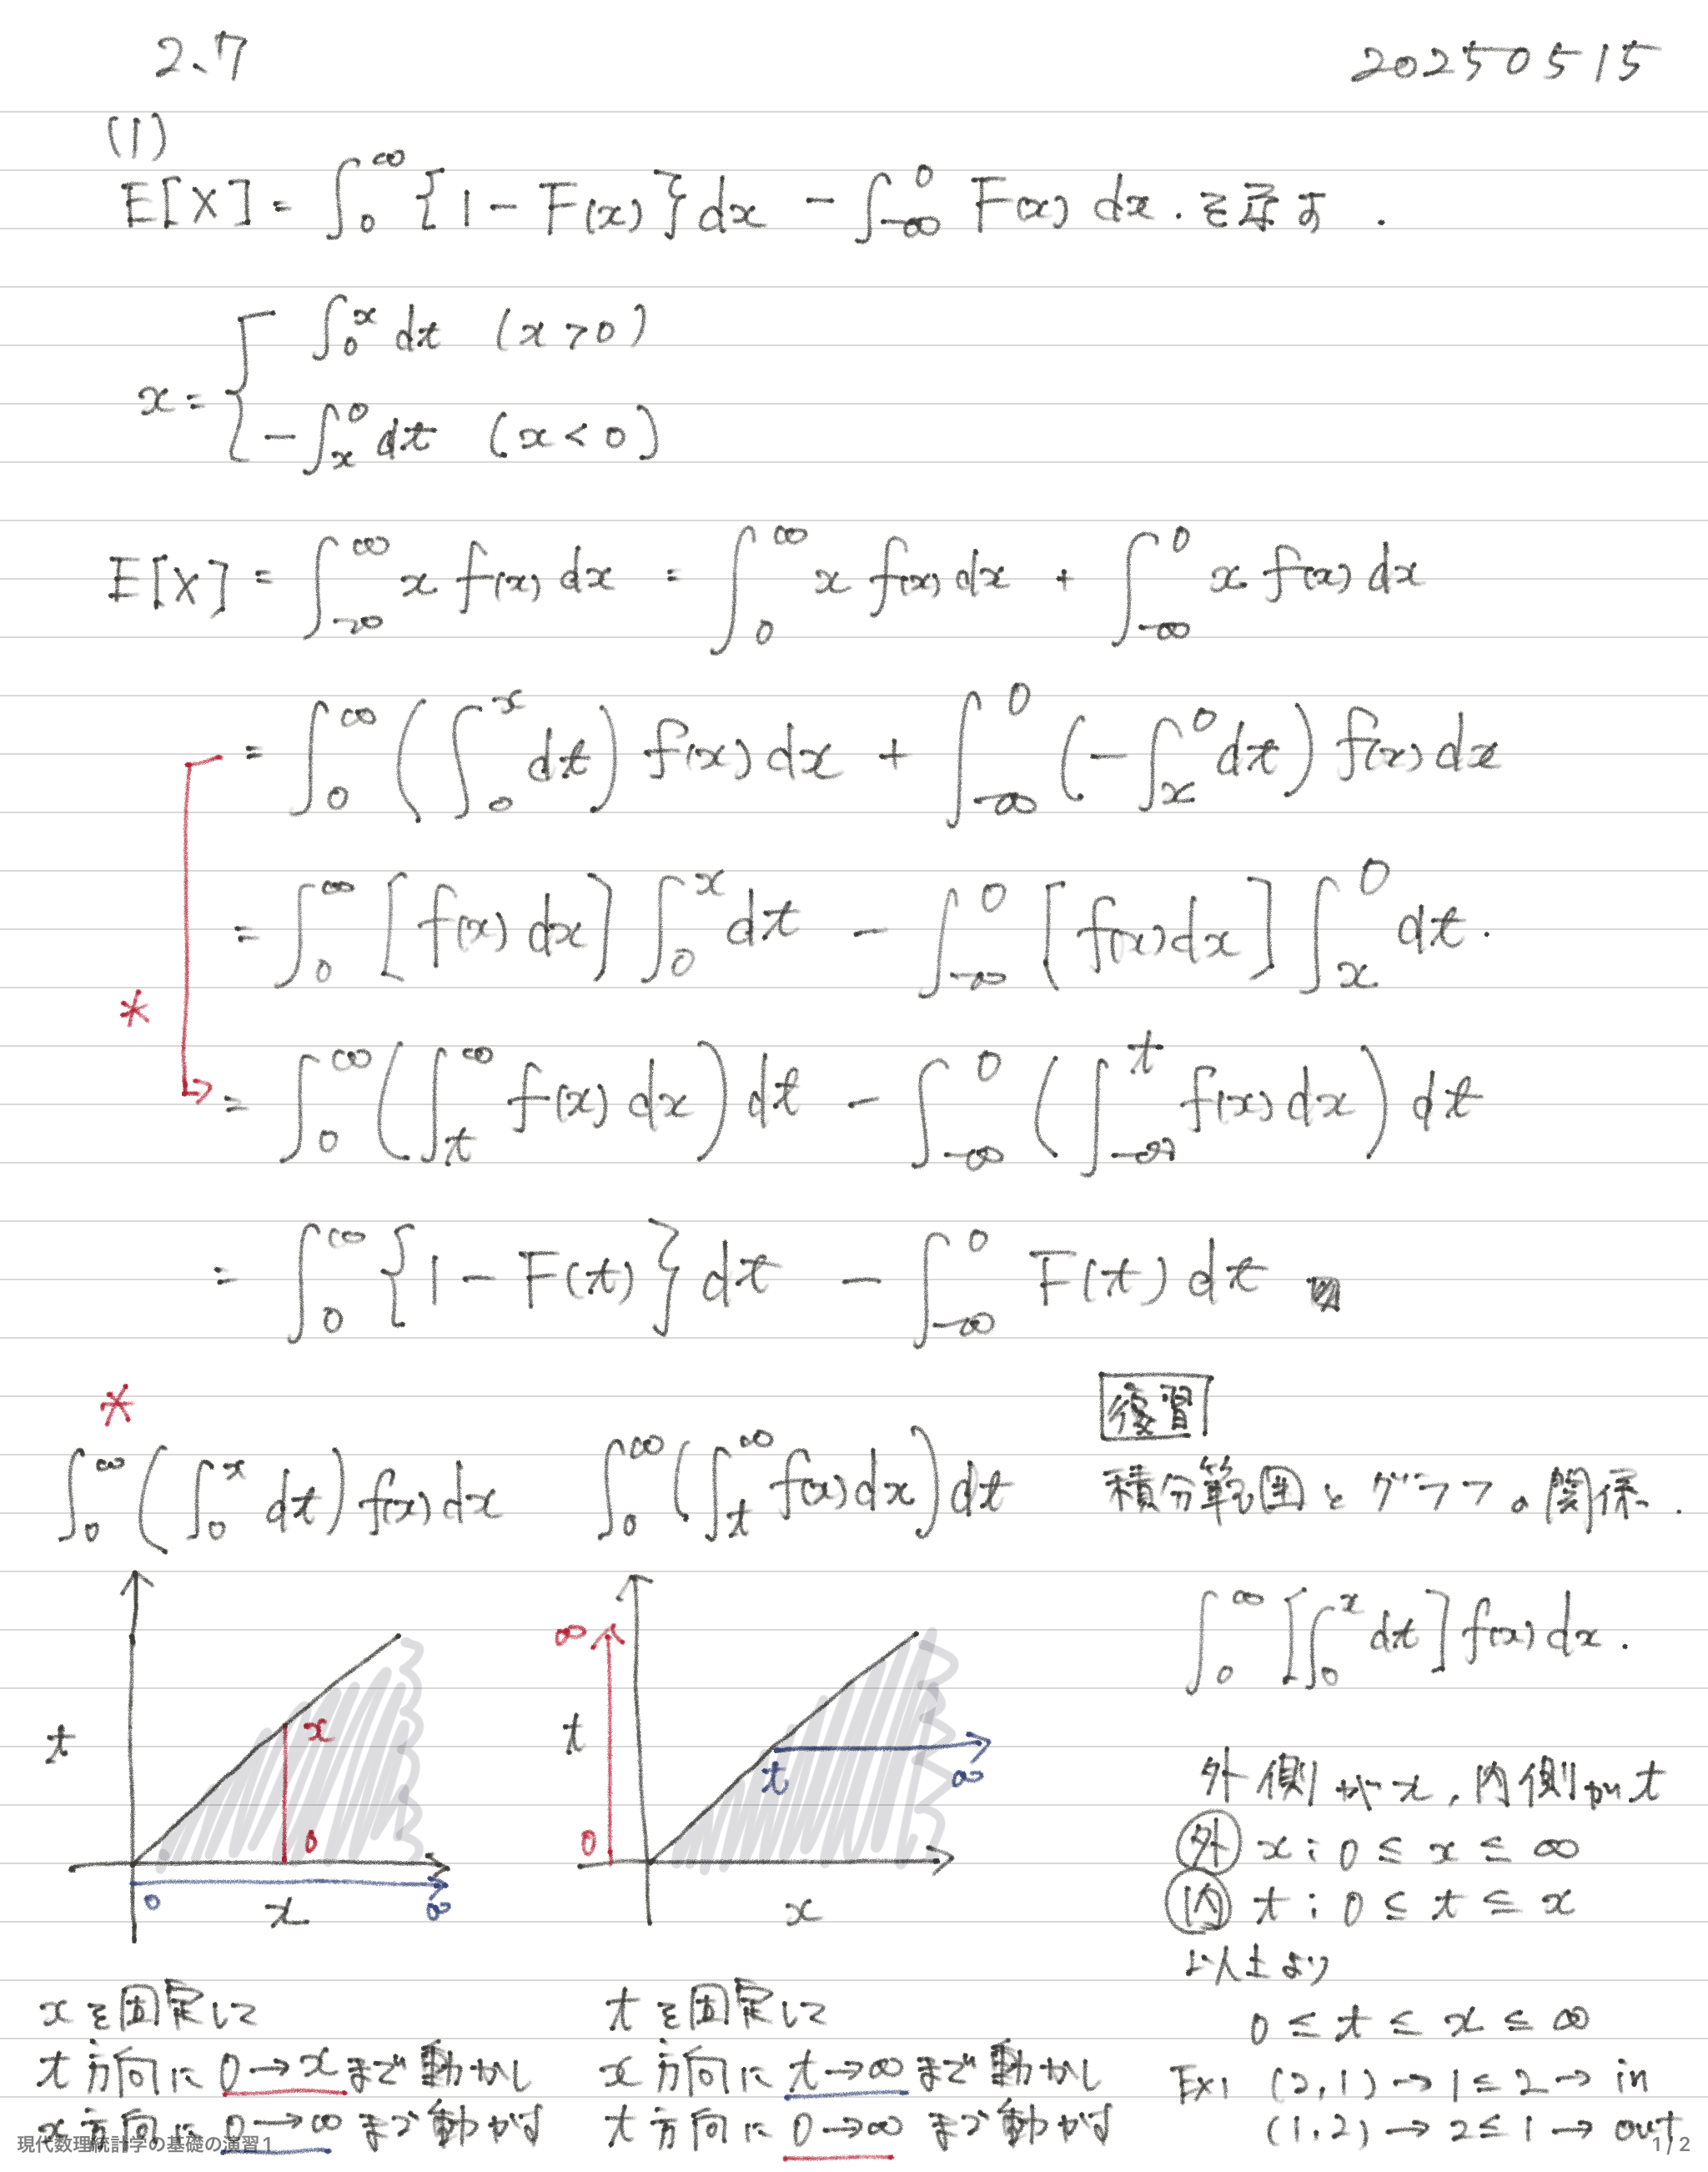 2.7
20250515
(1)
E[X] = ∫_0^∞ {1 - F(x)} dx - ∫_{-∞}^0 F(x) dx . を示す .
x = { ∫_0^x dt (x > 0)
- ∫_x^0 dt (x < 0)
E[X] = ∫_{-∞}^∞ x f(x) dx = ∫_0^∞ x f(x) dx + ∫_{-∞}^0 x f(x) dx
= ∫_0^∞ ( ∫_0^x dt ) f(x) dx + ∫_{-∞}^0 ( - ∫_x^0 dt ) f(x) dx
= ∫_0^∞ [ f(x) dx ] ∫_0^x dt - ∫_{-∞}^0 [ f(x) dx ] ∫_x^0 dt .
*
= ∫_0^∞ ( ∫_t^∞ f(x) dx ) dt - ∫_{-∞}^0 ( ∫_{-∞}^t f(x) dx ) dt
= ∫_0^∞ {1 - F(t)} dt - ∫_{-∞}^0 F(t) dt
*
∫_0^∞ ( ∫_0^x dt ) f(x) dx
t
x
0
0
x
∞
xを固定して
t方向に 0→xまで動かし
x方向に 0→∞まで動かす
∫_0^∞ ( ∫_t^∞ f(x) dx ) dt
∞
t
t
∞
0
x
tを固定して
x方向に t→∞まで動かし
t方向に 0→∞まで動かす
復習
積分範囲とグラフの関係 .
∫_0^∞ [ ∫_0^x dt ] f(x) dx .
外側がx, 内側がt
外 x : 0 ≤ x ≤ ∞
内 t : 0 ≤ t ≤ x
以上より
0 ≤ t ≤ x ≤ ∞
Ex) (2,1) → 1 ≤ 2 → in
(1,2) → 2 ≤ 1 → out
現代数理統計学の基礎の演習1
1 / 2